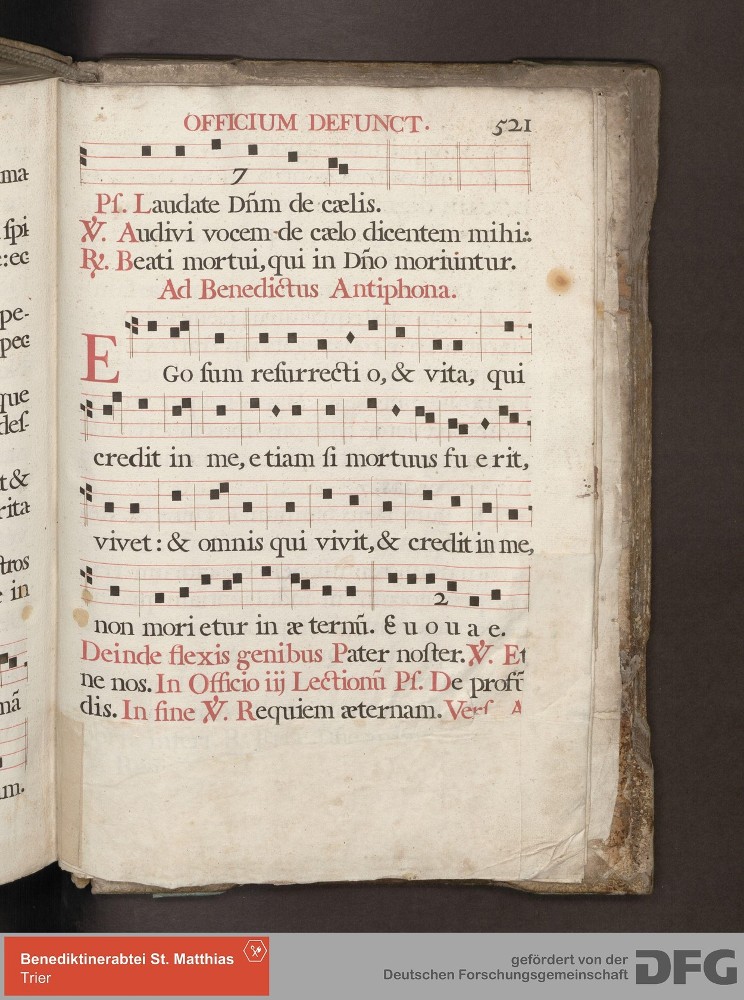 OFFICIUM DEFUNCT. 521
7
Pſ. Laudate Dñm de cælis.
℣. Audivi vocem de cælo dicentem mihi:.
℟. Beati mortui, qui in Dño moriuntur.
Ad Benedictus Antiphona.
EGo ſum reſurrecti o, & vita, qui
credit in me, etiam ſi mortuus fu e rit,
vivet: & omnis qui vivit, & credit in me,
2
non mori etur in æ ternũ. E u o u a e.
Deinde flexis genibus Pater noſter. ℣. Et
ne nos. In Officio iij Lectionũ Pſ. De profũ
dis. In fine ℣. Requiem æternam. Verſ A
ma
ſpi
:ec
pe-
pec
que
deſ-
t &
rita
ſtros
in
mã
m.
Benediktinerabtei St. Matthias
Trier
gefördert von der
Deutschen Forschungsgemeinschaft
DFG